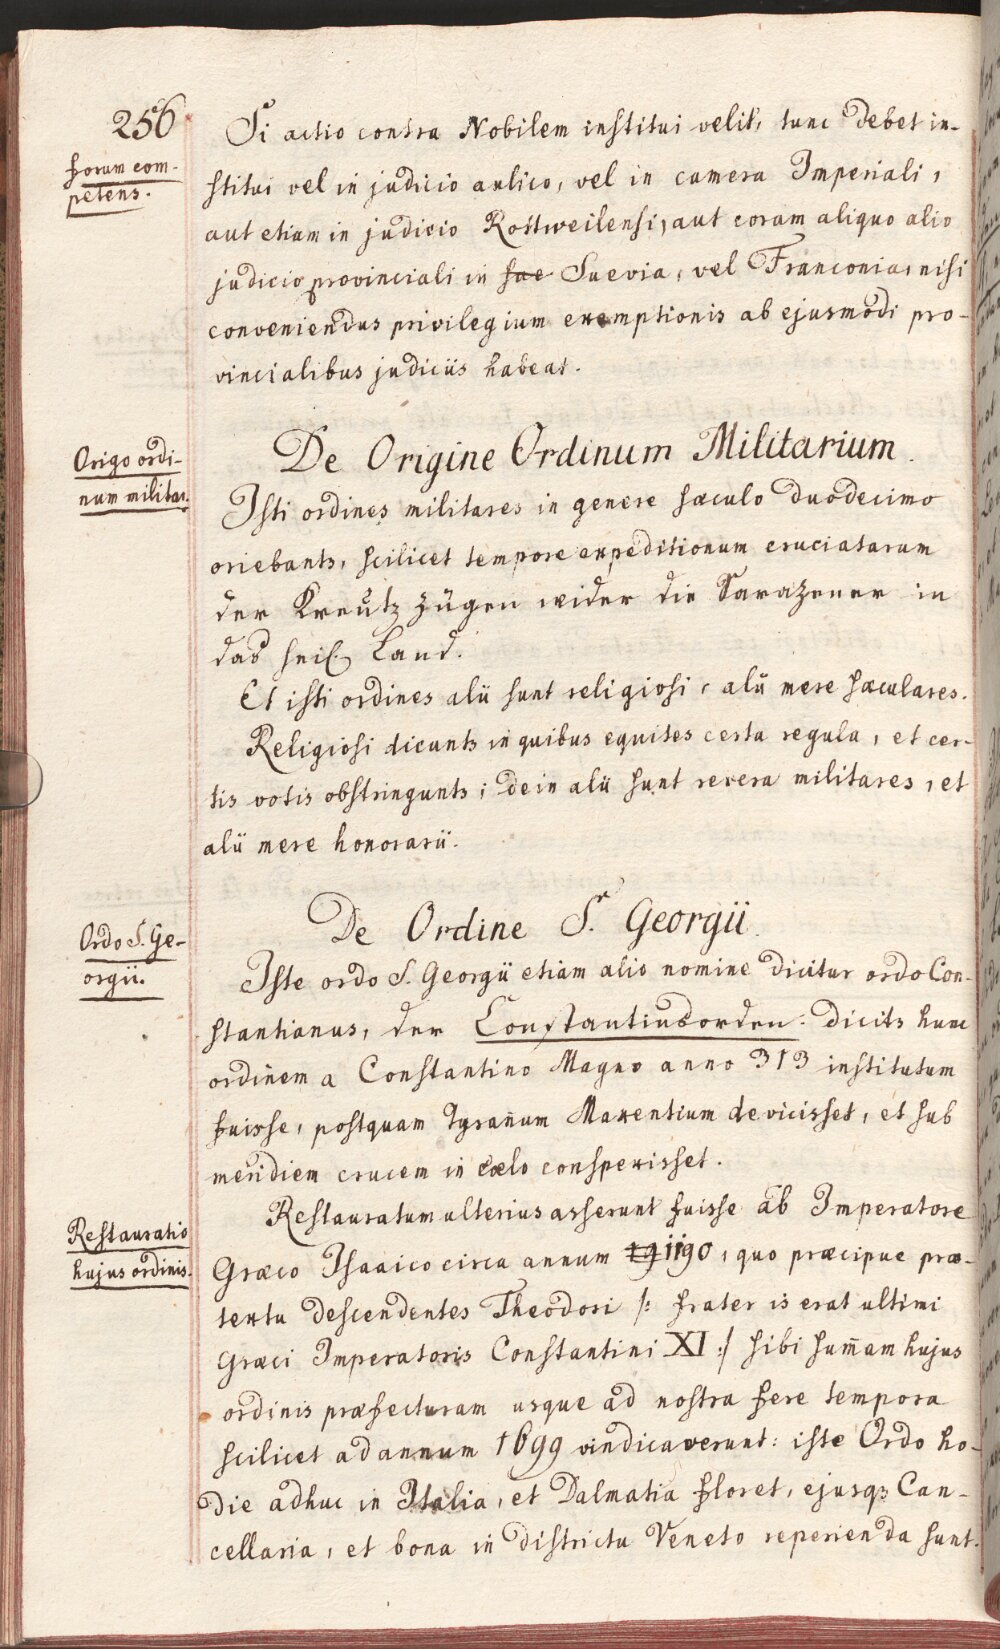 256
Si actio contra Nobilem institui velit, tunc debet in-
forum com-
petens.
stitui vel in judicio aulico, vel in camera Imperiali,
aut etiam in judicio Rottweilensi, aut coram aliquo alio
judicio provinciali in sue Suevia, vel Franconia, nisi
conveniendus privilegium exemptionis ab ejusmodi pro-
vincialibus judiciis habeat.
De Origine Ordinum Militarium.
Origo ordi-
num militar.
Isti ordines militares in genere sæculo duodecimo
oriebantr, scilicet tempore expeditionum cruciatarum
der Kreutz Zügen wider die Sarazener in
das heil. Land.
Et isti ordines alii sunt religiosi, alii mere sæculares.
Religiosi dicuntr in quibus equites certa regula, et cer-
tis votis obstringuntr; dein alii sunt revera militares, et
alii mere honorarii.
De Ordine S. Georgii.
Ordo S. Ge-
orgii.
Iste ordo S. Georgii etiam alio nomine dicitur ordo Con-
stantianus, der Constantinsorden. dicitr hunc
ordinem a Constantino Magno anno 313 institutum
fuisse, postquam Tyrañum Maxentium devicisset, et sub
meridiem crucem in cœlo conspexisset.
Restauratio
hujus ordinis.
Restauratum ulterius asserunt fuisse ab Imperatore
Græco Isaaico circa annum 19 1190, quo præcipue præ-
textu descendentes Theodori /: frater is erat ultimi
Græci Imperatoris Constantini XI :/ sibi sum̄am hujus
ordinis præfecturam usque ad nostra fere tempora
scilicet ad annum 1699 vindicaverunt: iste Ordo ho-
die adhuc in Italia, et Dalmatia floret, ejusq3 Can-
cellaria, et bona in districtu Veneto reperienda sunt.